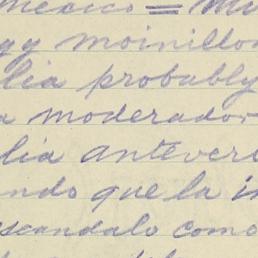 Mexico =
gy moinillo
lia probably
a moderador
lia antever
ndo que la i
scandalo como